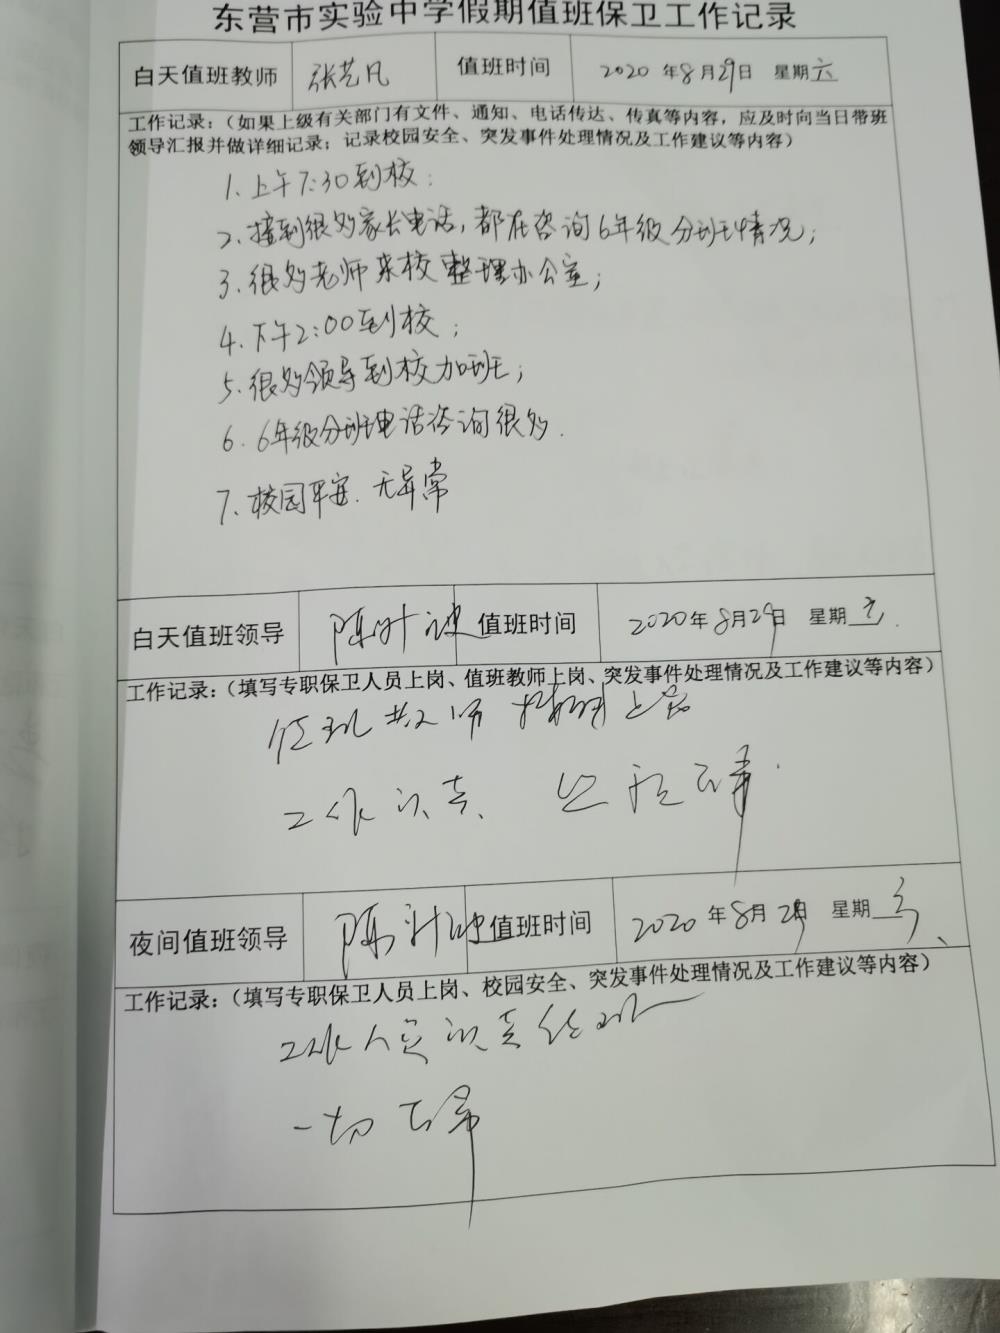 东营市实验中学假期值班保卫工作记录
白天值班教师 张艺凡 值班时间 2020年8月29日 星期六
工作记录:(如果上级有关部门有文件、通知、电话传达、传真等内容,应及时向当日带班
领导汇报并做详细记录;记录校园安全、突发事件处理情况及工作建议等内容)
1、上午7:30到校;
2、接到很多家长电话,都在咨询6年级分班情况;
3、很多老师来校整理办公室;
4、下午2:00到校;
5、很多领导到校加班;
6、6年级分班电话咨询很多.
7、校园平安.无异常
白天值班领导 陈 值班时间 2020年8月29日 星期六.
工作记录:(填写专职保卫人员上岗、值班教师上岗、突发事件处理情况及工作建议等内容)
值班教师按时上岗
工作认真、一切正常.
夜间值班领导 陈 值班时间 2020年8月29日 星期六、
工作记录:(填写专职保卫人员上岗、校园安全、突发事件处理情况及工作建议等内容)
工作人员认真值班
一切正常